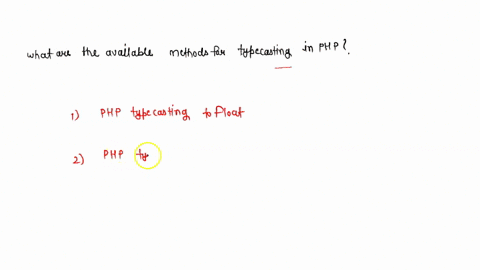 what are the available methods for typecasting in PHP?
1) PHP typecasting to float
2) PHP ty